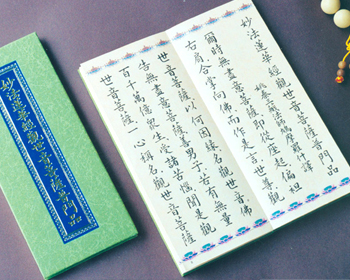 妙法蓮華經觀世音菩薩普門品
妙法蓮華經觀世音菩薩普門品
姚秦三藏法師鳩摩羅什譯
爾時無盡意菩薩即從座起偏袒
右肩合掌向佛而作是言世尊觀
世音菩薩以何因緣名觀世音佛
告無盡意菩薩善男子若有無量
百千萬億眾生受諸苦惱聞是觀
世音菩薩一心稱名觀世音菩薩